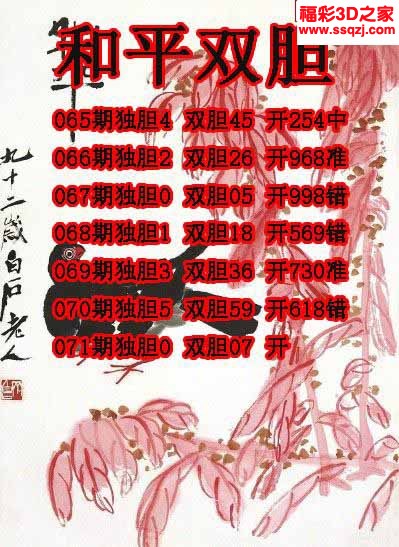 福彩3D之家
www.ssqzj.com
和平双胆
065期独胆4 双胆45 开254中
066期独胆2 双胆26 开968准
067期独胆0 双胆05 开998错
068期独胆1 双胆18 开569错
069期独胆3 双胆36 开730准
070期独胆5 双胆59 开618错
071期独胆0 双胆07 开
九十二岁白石老人